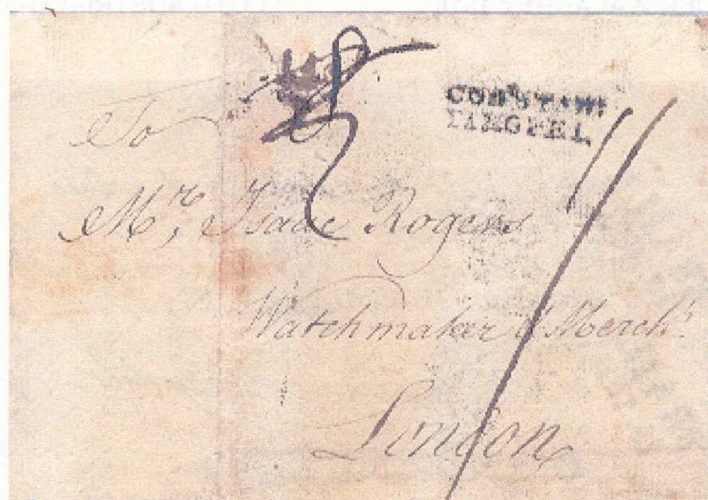 CONSTAN
TINOPEL
To
Mr, Isaac Rogers
Watchmaker & Merch.t
London